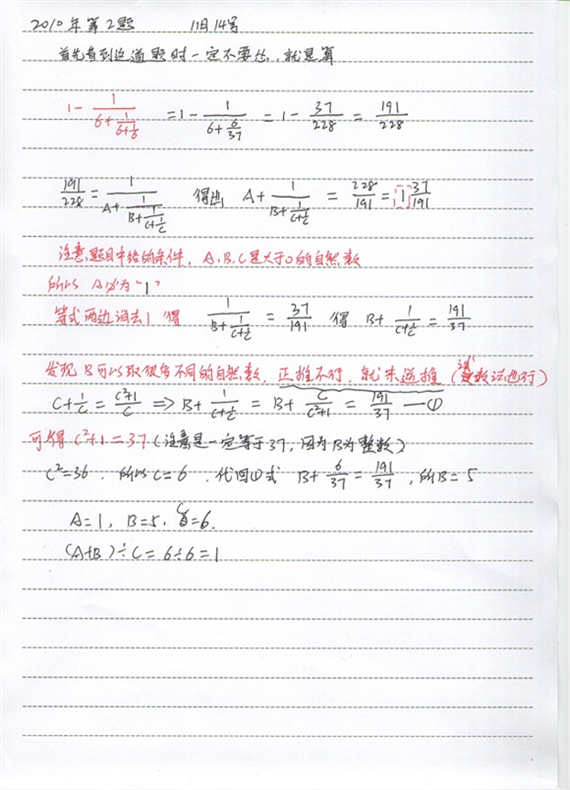 2010年第2题 11月14号
首先看到这道题时一定不要怕，就是算
1 - 1/(6+1/(6+1/6)) = 1 - 1/(6+6/37) = 1 - 37/228 = 191/228
191/228 = 1/(A+1/(B+1/(C+1/C))) 得出 A+1/(B+1/(C+1/C)) = 228/191 = 1 37/191
注意，题目中给的条件，A、B、C是大于0的自然数
所以 A必为"1"
等式两边消去1 得 1/(B+1/(C+1/C)) = 37/191 得 B+1/(C+1/C) = 191/37
发现B可以取很多不同的自然数，正推不行，就来逆推（试数法也行）
C+1/C = (C²+1)/C ⇒ B+1/(C+1/C) = B+C/(C²+1) = 191/37 —①
可得C²+1=37（注意是一定等于37，因为B为整数）
C²=36，所以C=6，代回①式 B+6/37=191/37，所B=5
A=1，B=5，C=6.
(A+B)÷C=6÷6=1